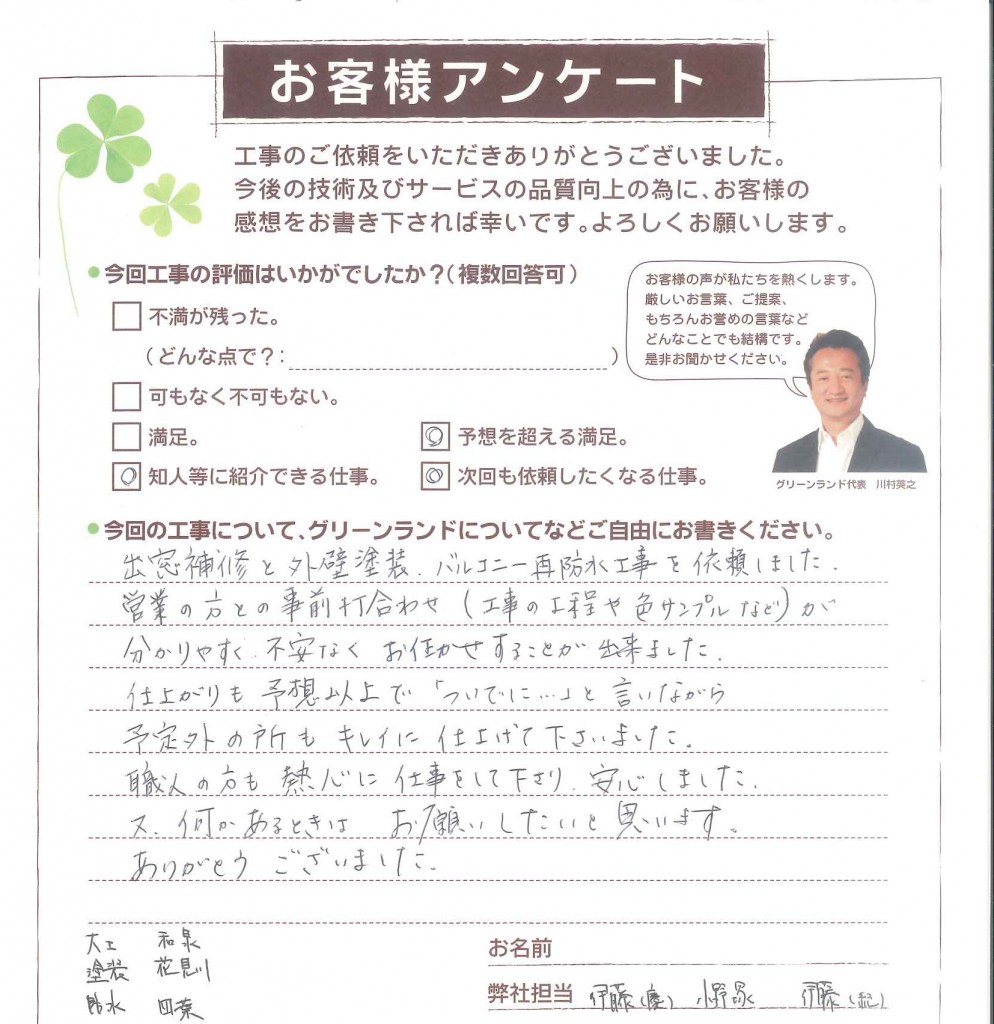 お客様アンケート
工事のご依頼をいただきありがとうございました。
今後の技術及びサービスの品質向上の為に、お客様の
感想をお書き下されば幸いです。よろしくお願いします。
今回工事の評価はいかがでしたか？（複数回答可）
不満が残った。
（どんな点で？：　）
可もなく不可もない。
満足。
予想を超える満足。
知人等に紹介できる仕事。
次回も依頼したくなる仕事。
お客様の声が私たちを熱くします。
厳しいお言葉、ご提案、
もちろんお誉めの言葉など
どんなことでも結構です。
是非お聞かせください。
グリーンランド代表　川村英之
今回の工事について、グリーンランドについてなどご自由にお書きください。
出窓補修と外壁塗装、バルコニー再防水工事を依頼しました。
営業の方との事前打合わせ（工事の工程や色サンプルなど）が
分かりやすく、不安なくお任かせすることが出来ました。
仕上がりも予想以上で「ついでに…」と言いながら
予定外の所もキレイに仕上げて下さいました。
職人の方も熱心に仕事をして下さり、安心しました。
又、何かあるときはお願いしたいと思います。
ありがとうございました。
大工　和泉
塗装　花見川
防水　四葉
お名前
弊社担当　伊藤（慶）　小野塚　伊藤（紀）